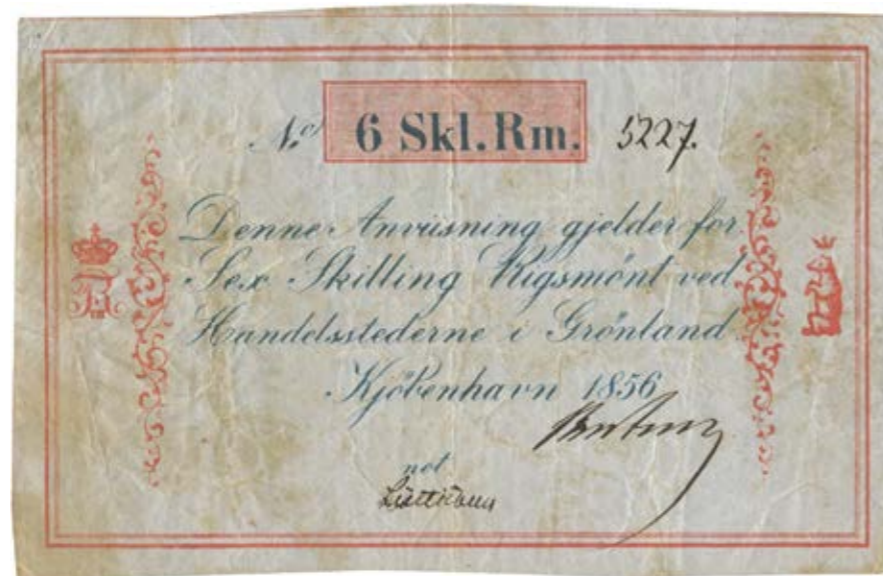 No. 6 Skl. Rm. 5227.
Denne Anviisning gjelder for
Sex Skilling Rigsmönt ved
Handelsstederne i Grönland
Kjöbenhavn 1856
not